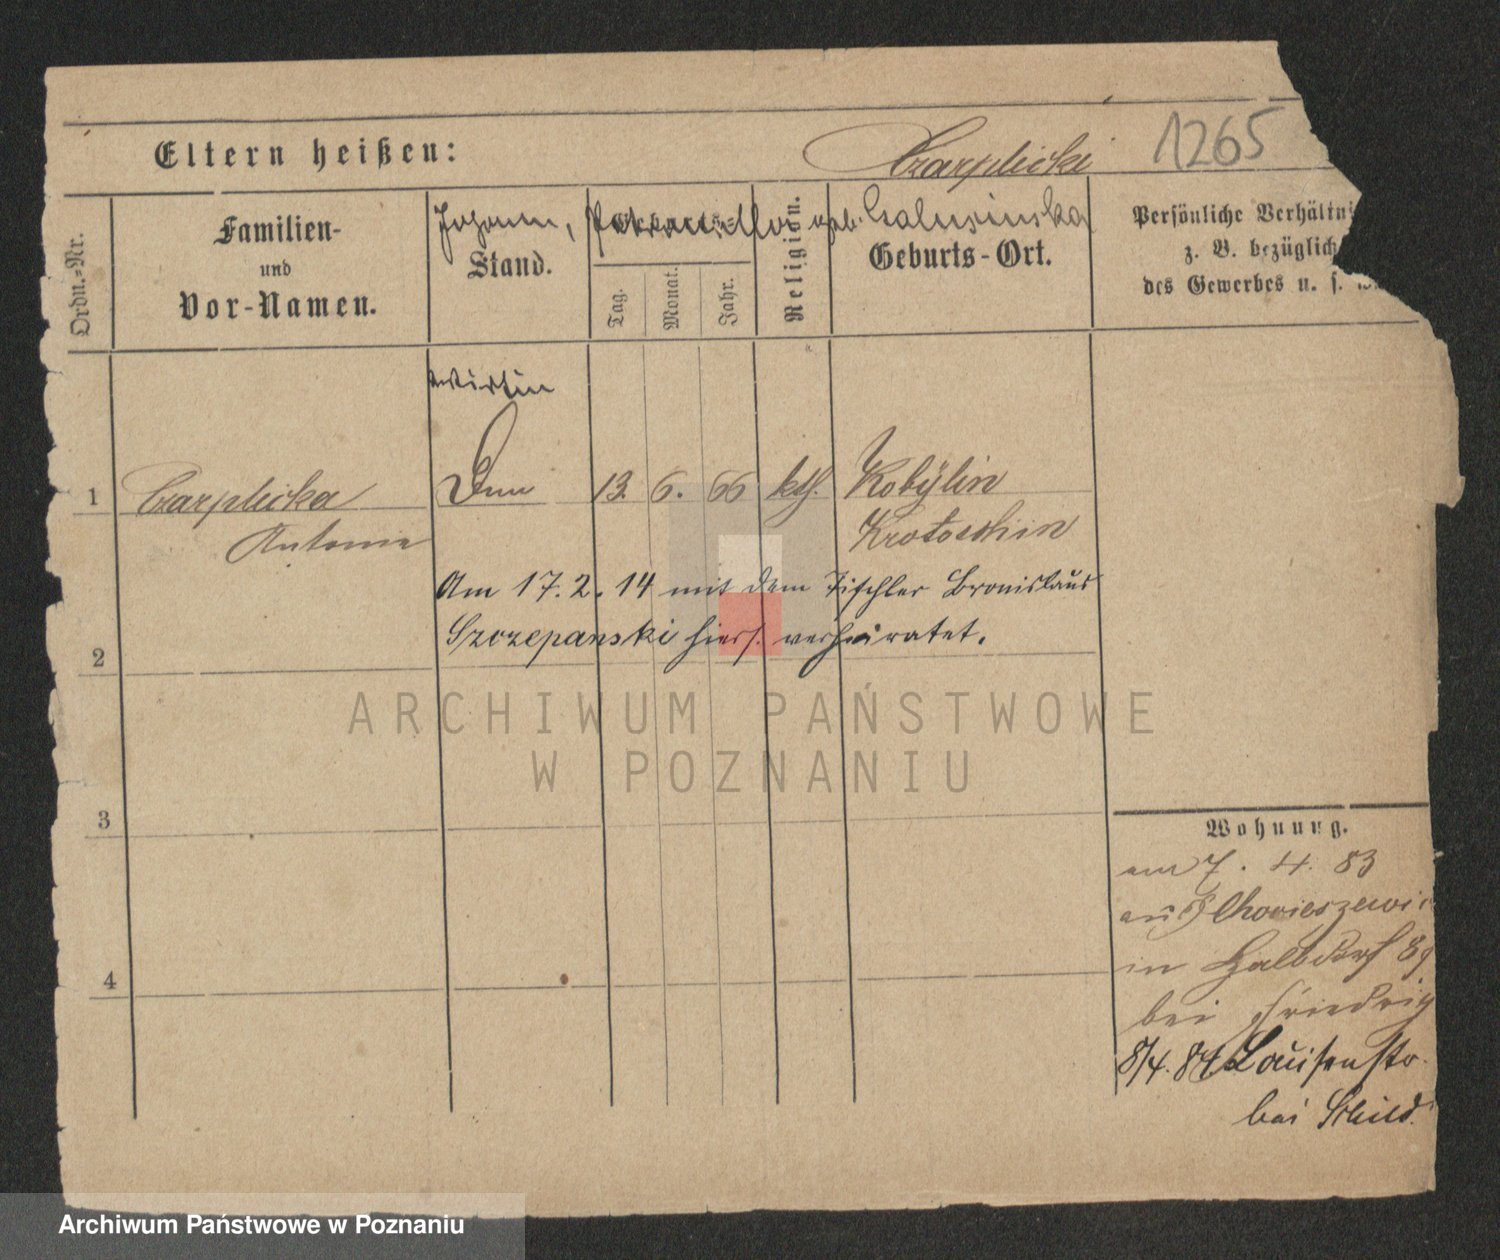 Eltern heißen: Czarplicki 1265
Johann, geb. Galusinska
Ordn.-Nr. Familien- und Vor-Namen. Stand. Tag. Monat. Jahr. Religion. Geburts-Ort. Persönliche Verhältni
z. B. bezüglich
des Gewerbes u. s.
wirtin
1 Czarplicka 13. 6. 66 kth. Kobylin
Antonie Krotoschin
Am 17. 2. 14 mit dem Tischler Bronislaus
Szczepanski hiers. verheiratet.
2
3
4
Wohnung.
am 7. 4. 83
aus
in Halbdorf
bei Friedrig
8/4. 84 Louisenstr.
bei Schild.
ARCHIWUM PAŃSTWOWE
W POZNANIU
Archiwum Państwowe w Poznaniu